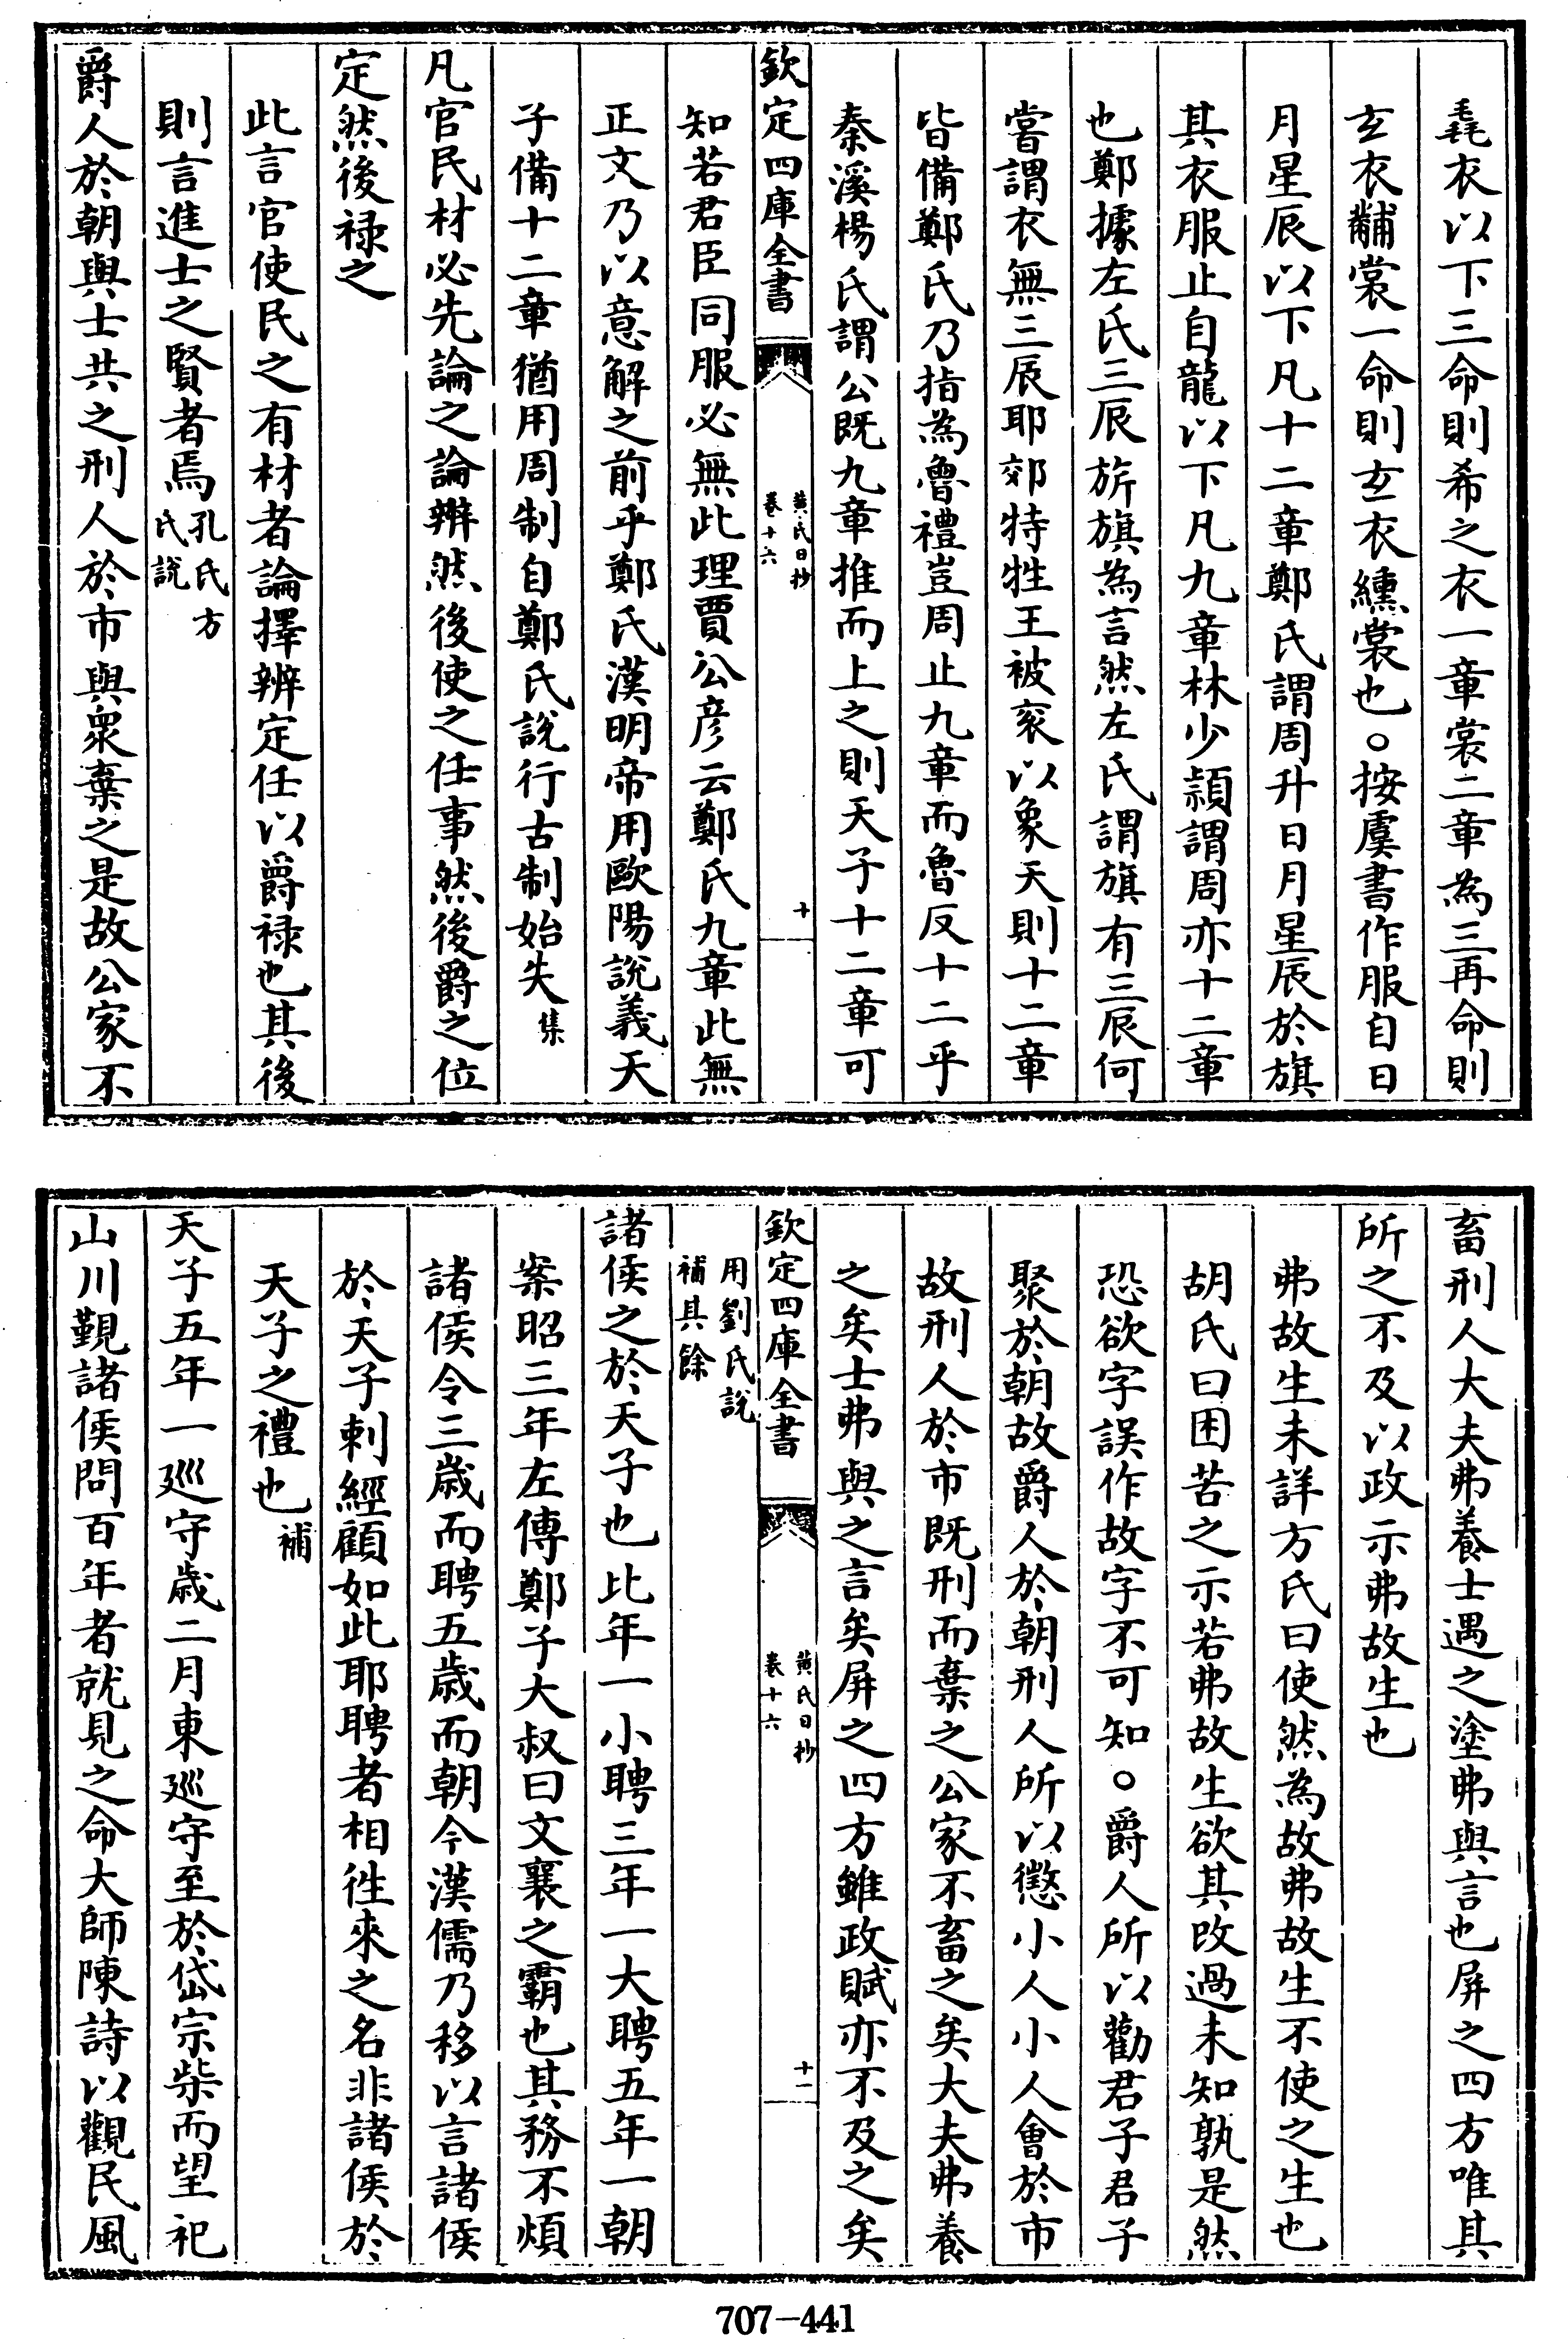 毳衣以下三命則希之衣一章裳二章為三再命則
玄衣黼裳一命則玄衣纁裳也○按虞書作服自日
月星辰以下凡十二章鄭氏謂周升日月星辰於旗
其衣服止自龍以下凡九章林少頴謂周亦十二章
也鄭據左氏三辰旂旗為言然左氏謂旗有三辰何
嘗謂衣無三辰耶郊特牲王被衮以象天則十二章
皆備鄭氏乃指為魯禮豈周止九章而魯反十二乎
秦溪楊氏謂公既九章推而上之則天子十二章可
欽定四庫全書
黄氏日抄
卷十六
十
知若君臣同服必無此理賈公彦云鄭氏九章此無
正文乃以意解之前乎鄭氏漢明帝用歐陽說義天
子備十二章猶用周制自鄭氏說行古制始失集
凡官民材必先論之論辨然後使之任事然後爵之位
定然後禄之
此言官使民之有材者論擇辨定任以爵禄也其後
則言進士之賢者焉孔氏方
氏說
爵人於朝與士共之刑人於市與衆棄之是故公家不
畜刑人大夫弗養士遇之塗弗與言也屏之四方唯其
所之不及以政示弗故生也
弗故生未詳方氏曰使然為故弗故生不使之生也
胡氏曰困苦之示若弗故生欲其改過未知孰是然
恐欲字誤作故字不可知○爵人所以勸君子君子
聚於朝故爵人於朝刑人所以懲小人小人會於市
故刑人於市既刑而棄之公家不畜之矣大夫弗養
之矣士弗與之言矣屏之四方雖政賦亦不及之矣
欽定四庫全書
黄氏日抄
卷十六
十一
用劉氏說
補其餘
諸侯之於天子也比年一小聘三年一大聘五年一朝
案昭三年左傳鄭子大叔曰文襄之霸也其務不煩
諸侯令三歲而聘五歲而朝今漢儒乃移以言諸侯
於天子剌經顧如此耶聘者相徃來之名非諸侯於
天子之禮也補
天子五年一廵守歲二月東廵守至於岱宗柴而望祀
山川覲諸侯問百年者就見之命大師陳詩以觀民風
707-441